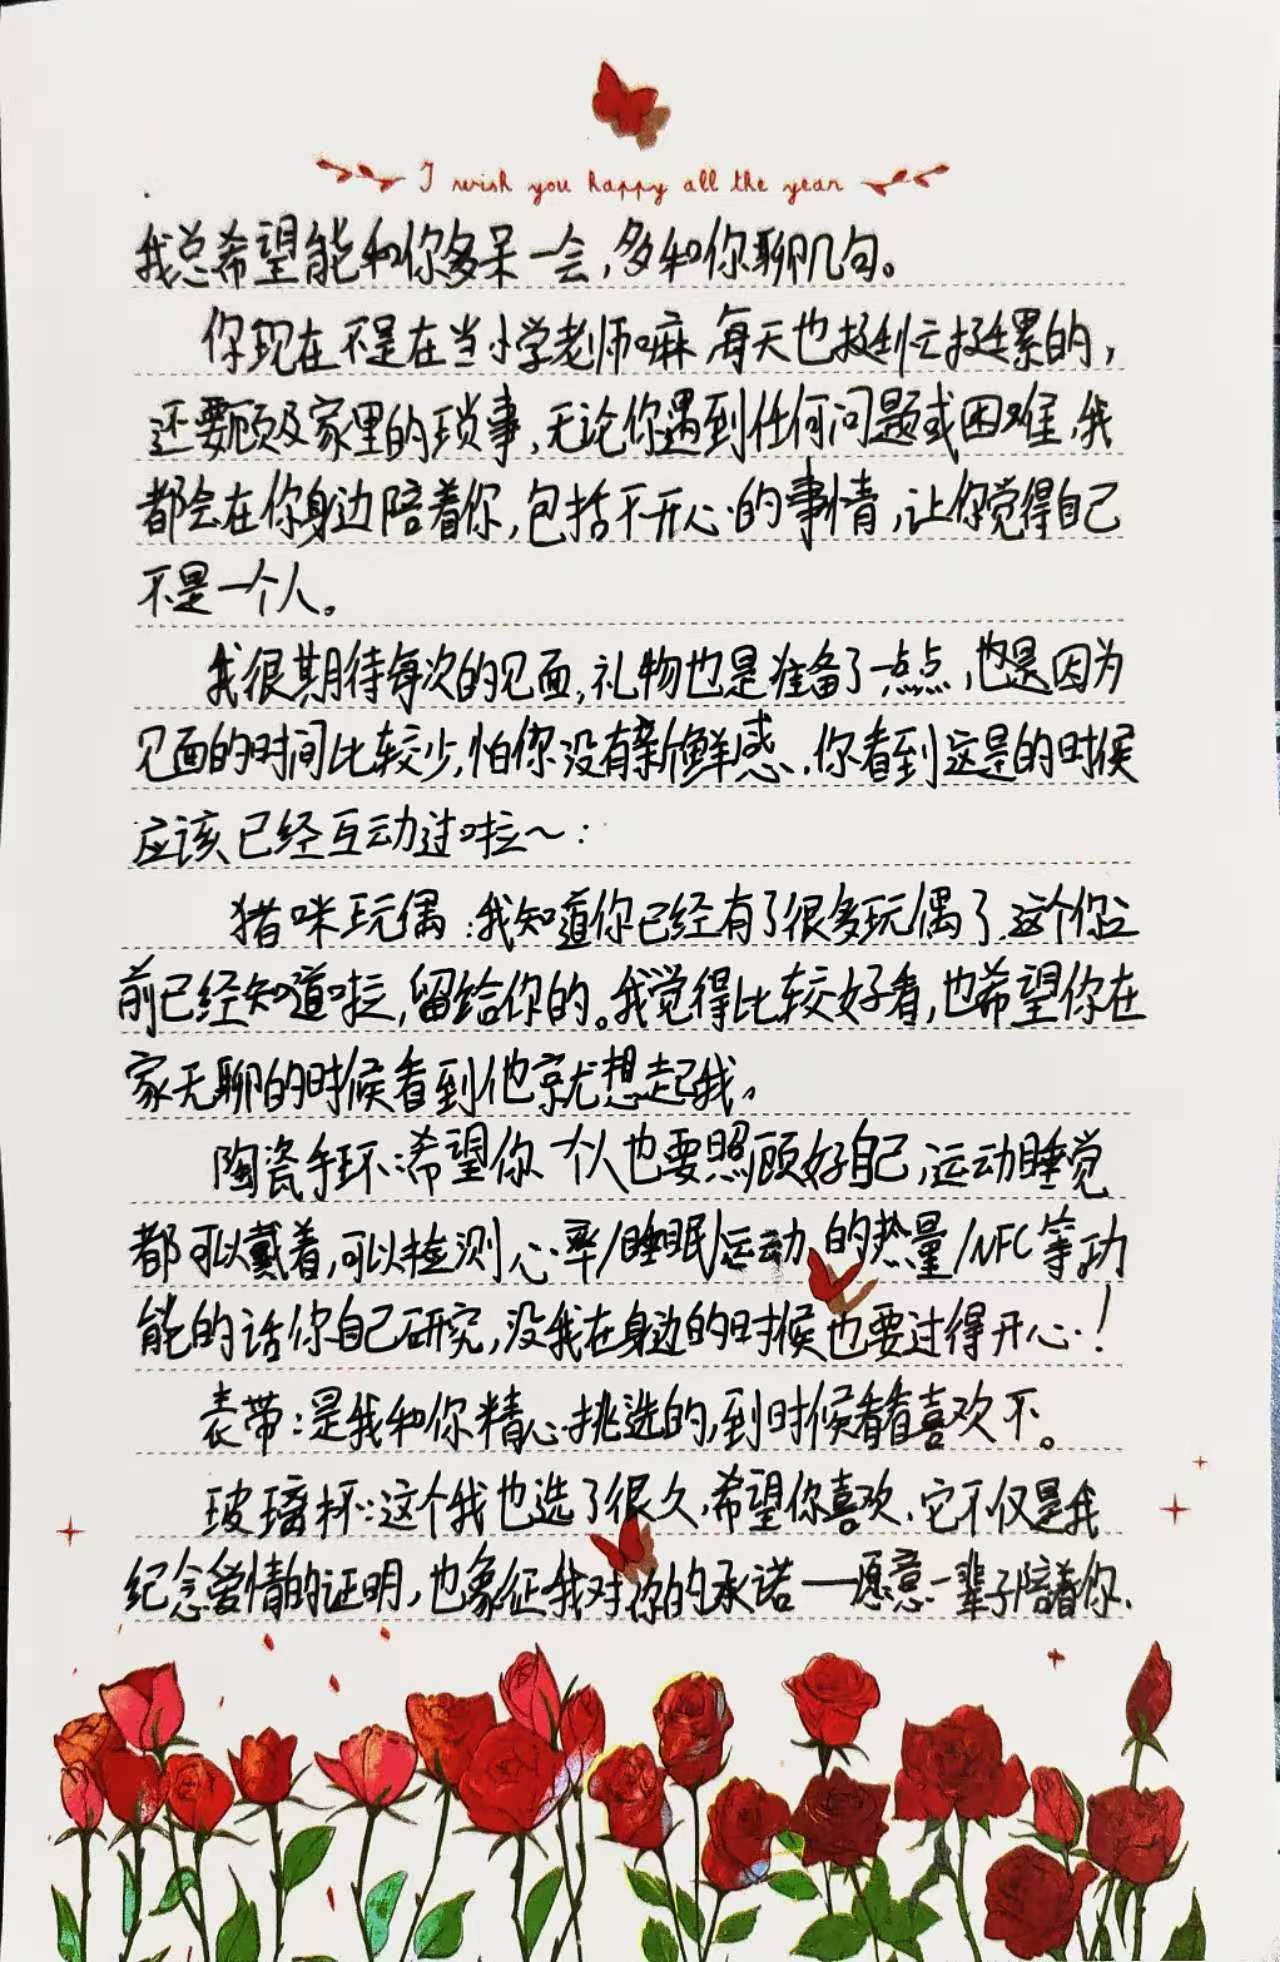 I wish you happy all the year
我总希望能和你多呆一会,多和你聊几句。
你现在不是在当小学老师嘛,每天也挺忙挺累的,
还要顾及家里的琐事,无论你遇到任何问题或困难,我
都会在你身边陪着你,包括不开心的事情,让你觉得自己
不是一个人。
我很期待每次的见面,礼物也是准备了一点点,也是因为
见面的时间比较少,怕你没有新鲜感,你看到这是的时候
应该已经互动过啦~:
猫咪玩偶:我知道你已经有了很多玩偶了,这个你之
前已经知道啦,留给你的。我觉得比较好看,也希望你在
家无聊的时候看到他就想起我,
陶瓷手环:希望你一个人也要照顾好自己,运动睡觉
都可以戴着,可以检测心率/睡眠/运动、的热量/NFC等功
能的话你自己研究,没我在身边的时候也要过得开心!
表带:是我和你精心挑选的,到时候看看喜欢不。
玻璃杯:这个我也选了很久,希望你喜欢,它不仅是我
纪念爱情的证明,也象征我对你的承诺——愿意一辈子陪着你、